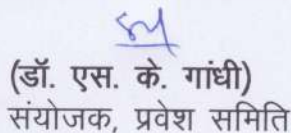 (डॉ. एस. के. गांधी)
संयोजक, प्रवेश समिति